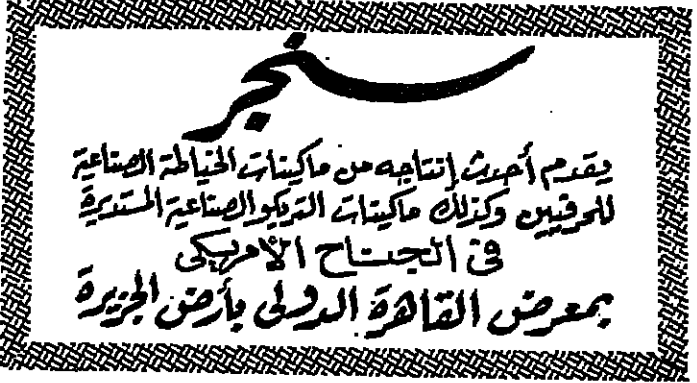 سنجر
يقدم أحدث إنتاجه من ماكينات الخياطة الصناعية
للحرفيين وكذلك ماكينات التريكو الصناعية المستديرة
فى الجناح الأمريكى
بمعرض القاهرة الدولى بأرض الجزيرة